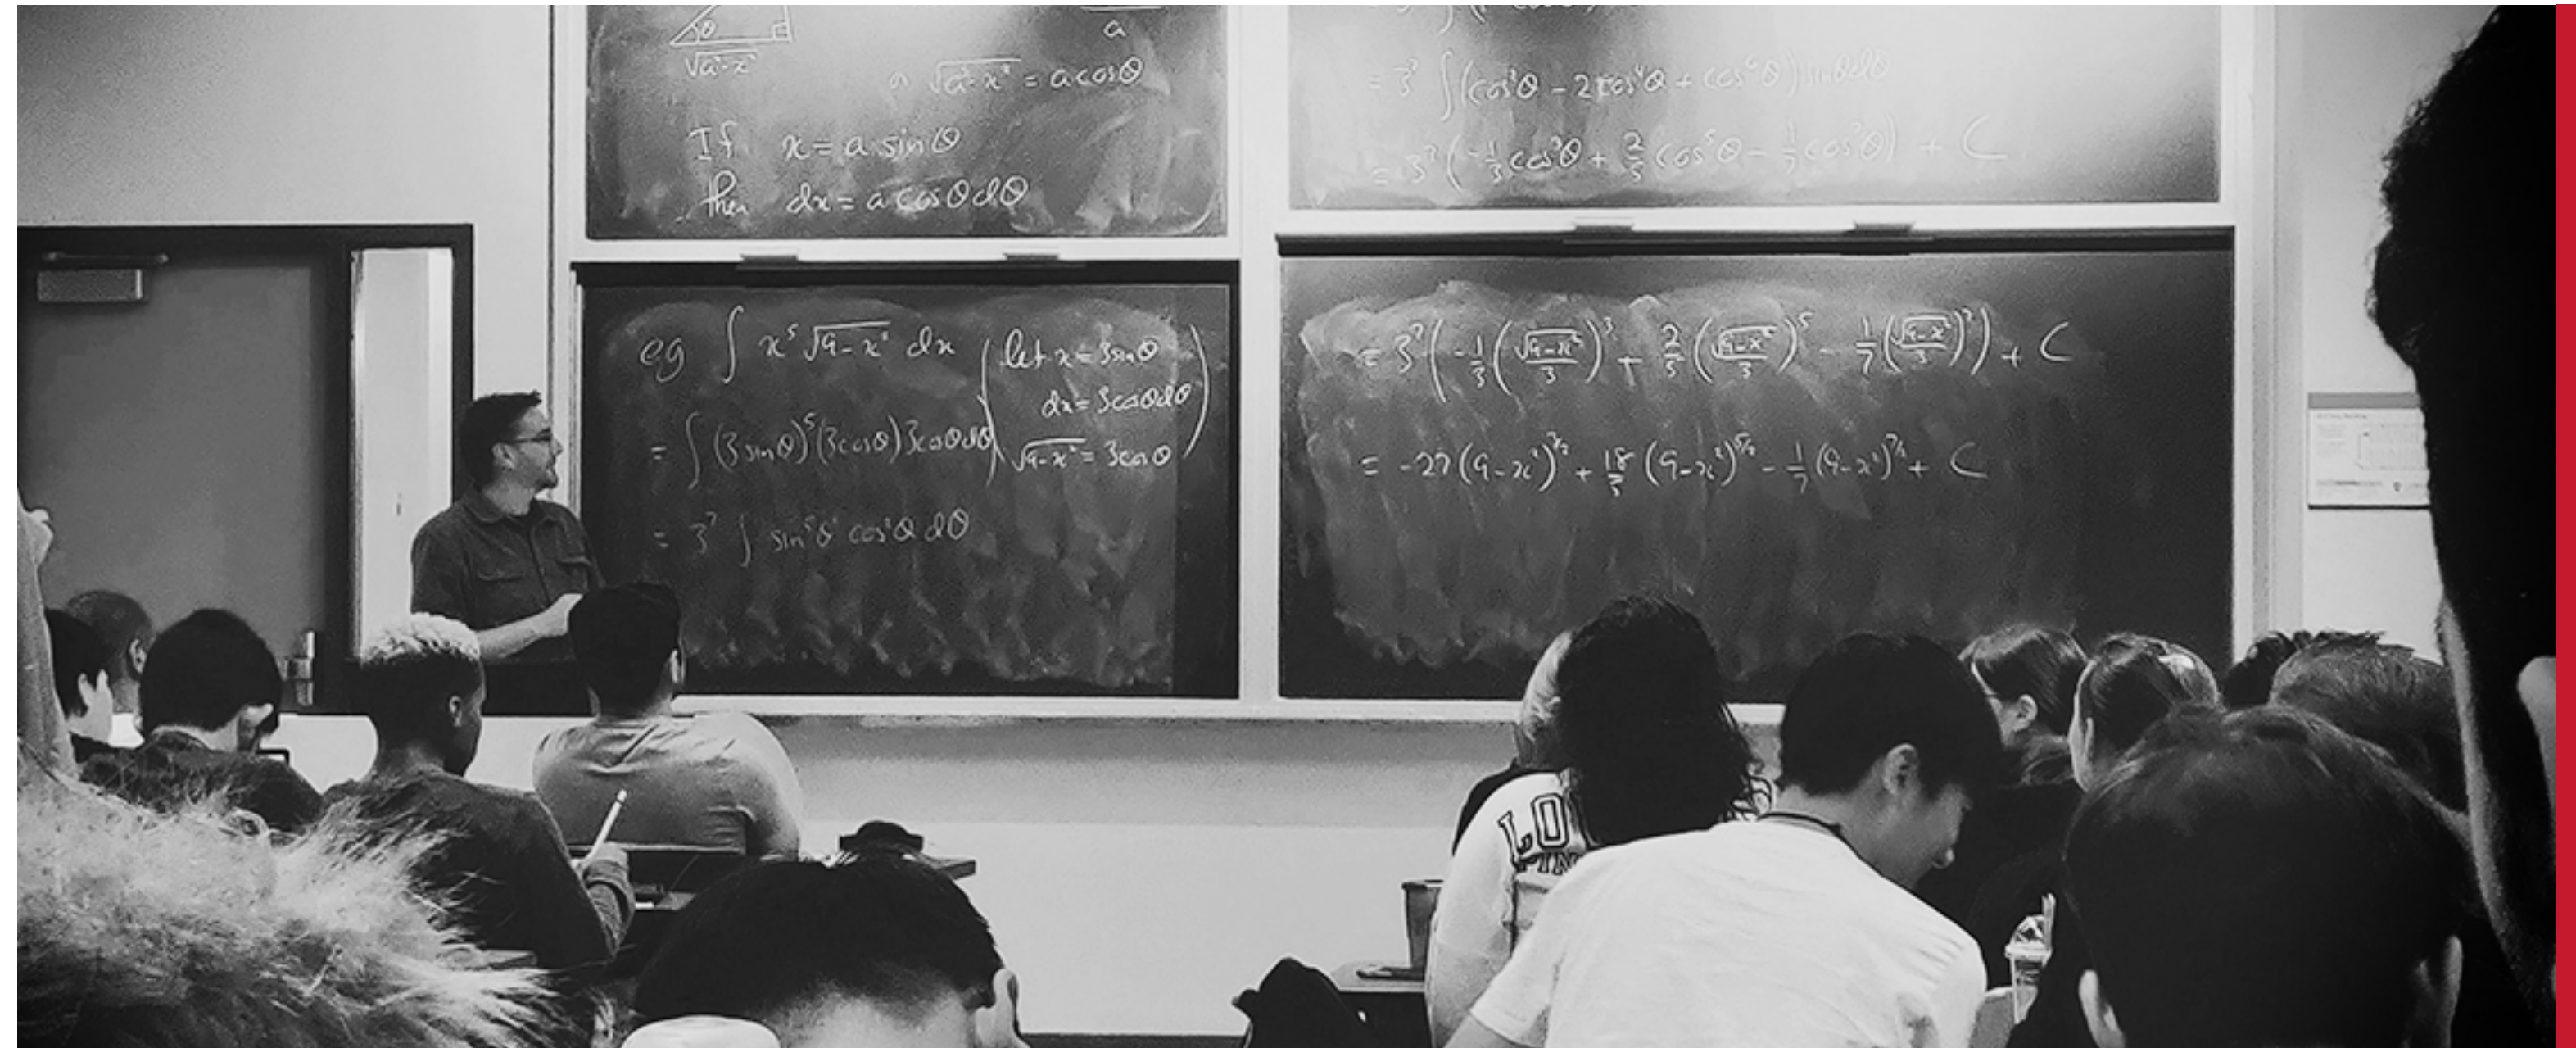 θ
√a²-x²
a
√a²-x² = a cosθ
If x = a sinθ
then dx = a cosθ dθ
eg ∫ x⁵ √9-x² dx (let x = 3sinθ
dx = 3cosθdθ
√9-x² = 3cosθ)
= ∫ (3 sinθ)⁵ (3cosθ) 3cosθdθ
= 3⁷ ∫ sin⁵θ cos²θ dθ
= 3⁷ ∫ (cos²θ - 2cos⁴θ + cos⁶θ) sinθdθ
= 3⁷ (-1/3 cos³θ + 2/5 cos⁵θ - 1/7 cos⁷θ) + C
= 3⁷ (-1/3 (√9-x²/3)³ + 2/5 (√9-x²/3)⁵ - 1/7 (√9-x²/3)⁷) + C
= -27 (9-x²)^3/2 + 18/5 (9-x²)^5/2 - 1/7 (9-x²)^7/2 + C
LO